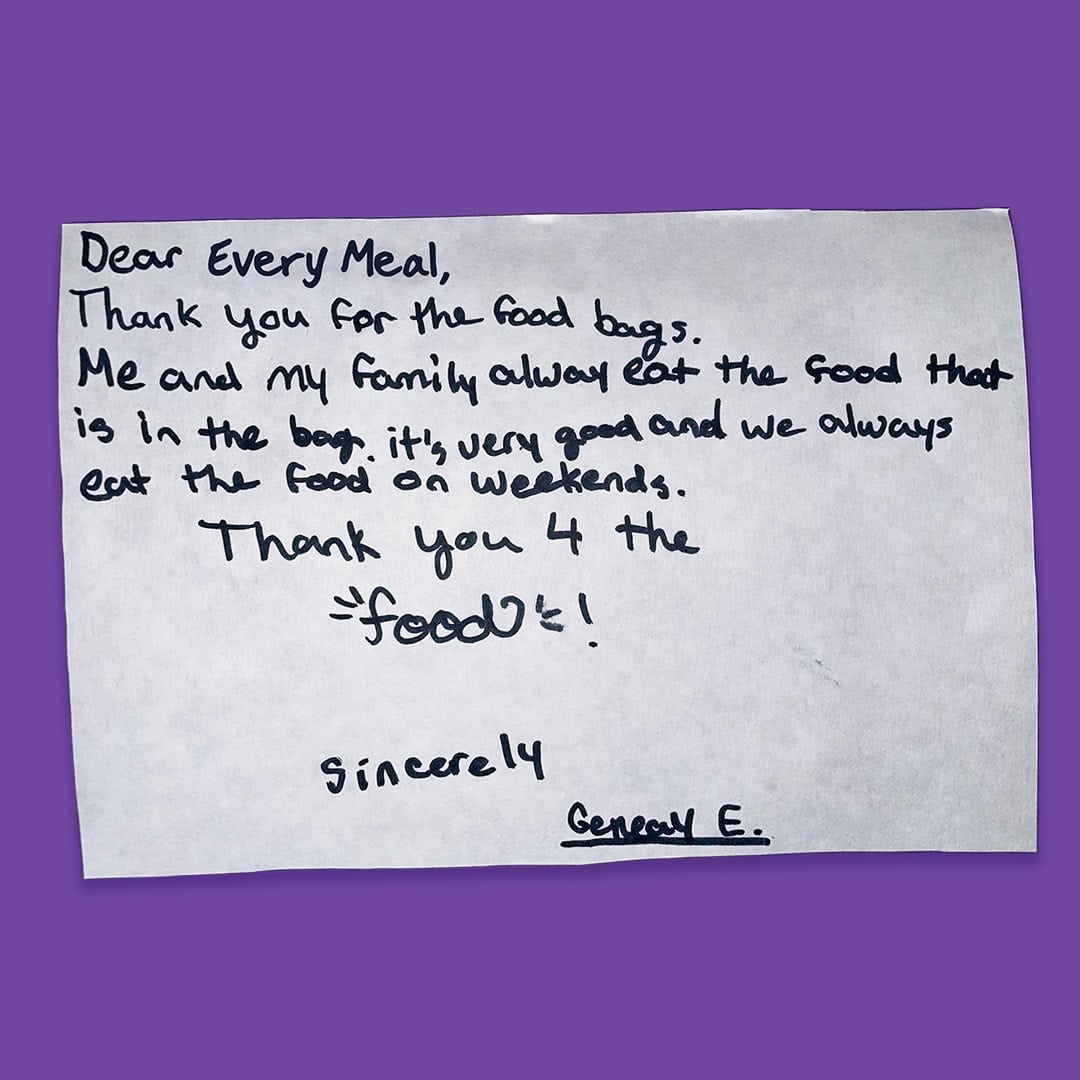 Dear Every Meal,
Thank you for the food bags.
Me and my family alway eat the food that
is in the bag. it's very good and we always
eat the food on weekends.
Thank you 4 the
food!
sincerely
E.